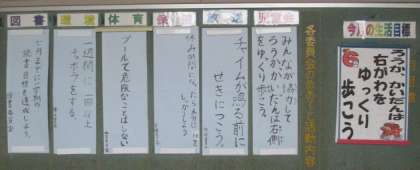 今月の生活目標
ろうか、かいだんは
右がわを
ゆっくり
歩こう
各委員会のめあて・活動内容
児童会
みんなが協力して
ろうか、かいだんは右側
をゆっくり歩こう。
放送
チャイムが鳴る前に
せきにつこう。
保健
体育
プールで危険なことはしない
環境
一週間に一回以上
をする。
図書
七月までに一学期の
読書目標を達成しよう。
図書委員会